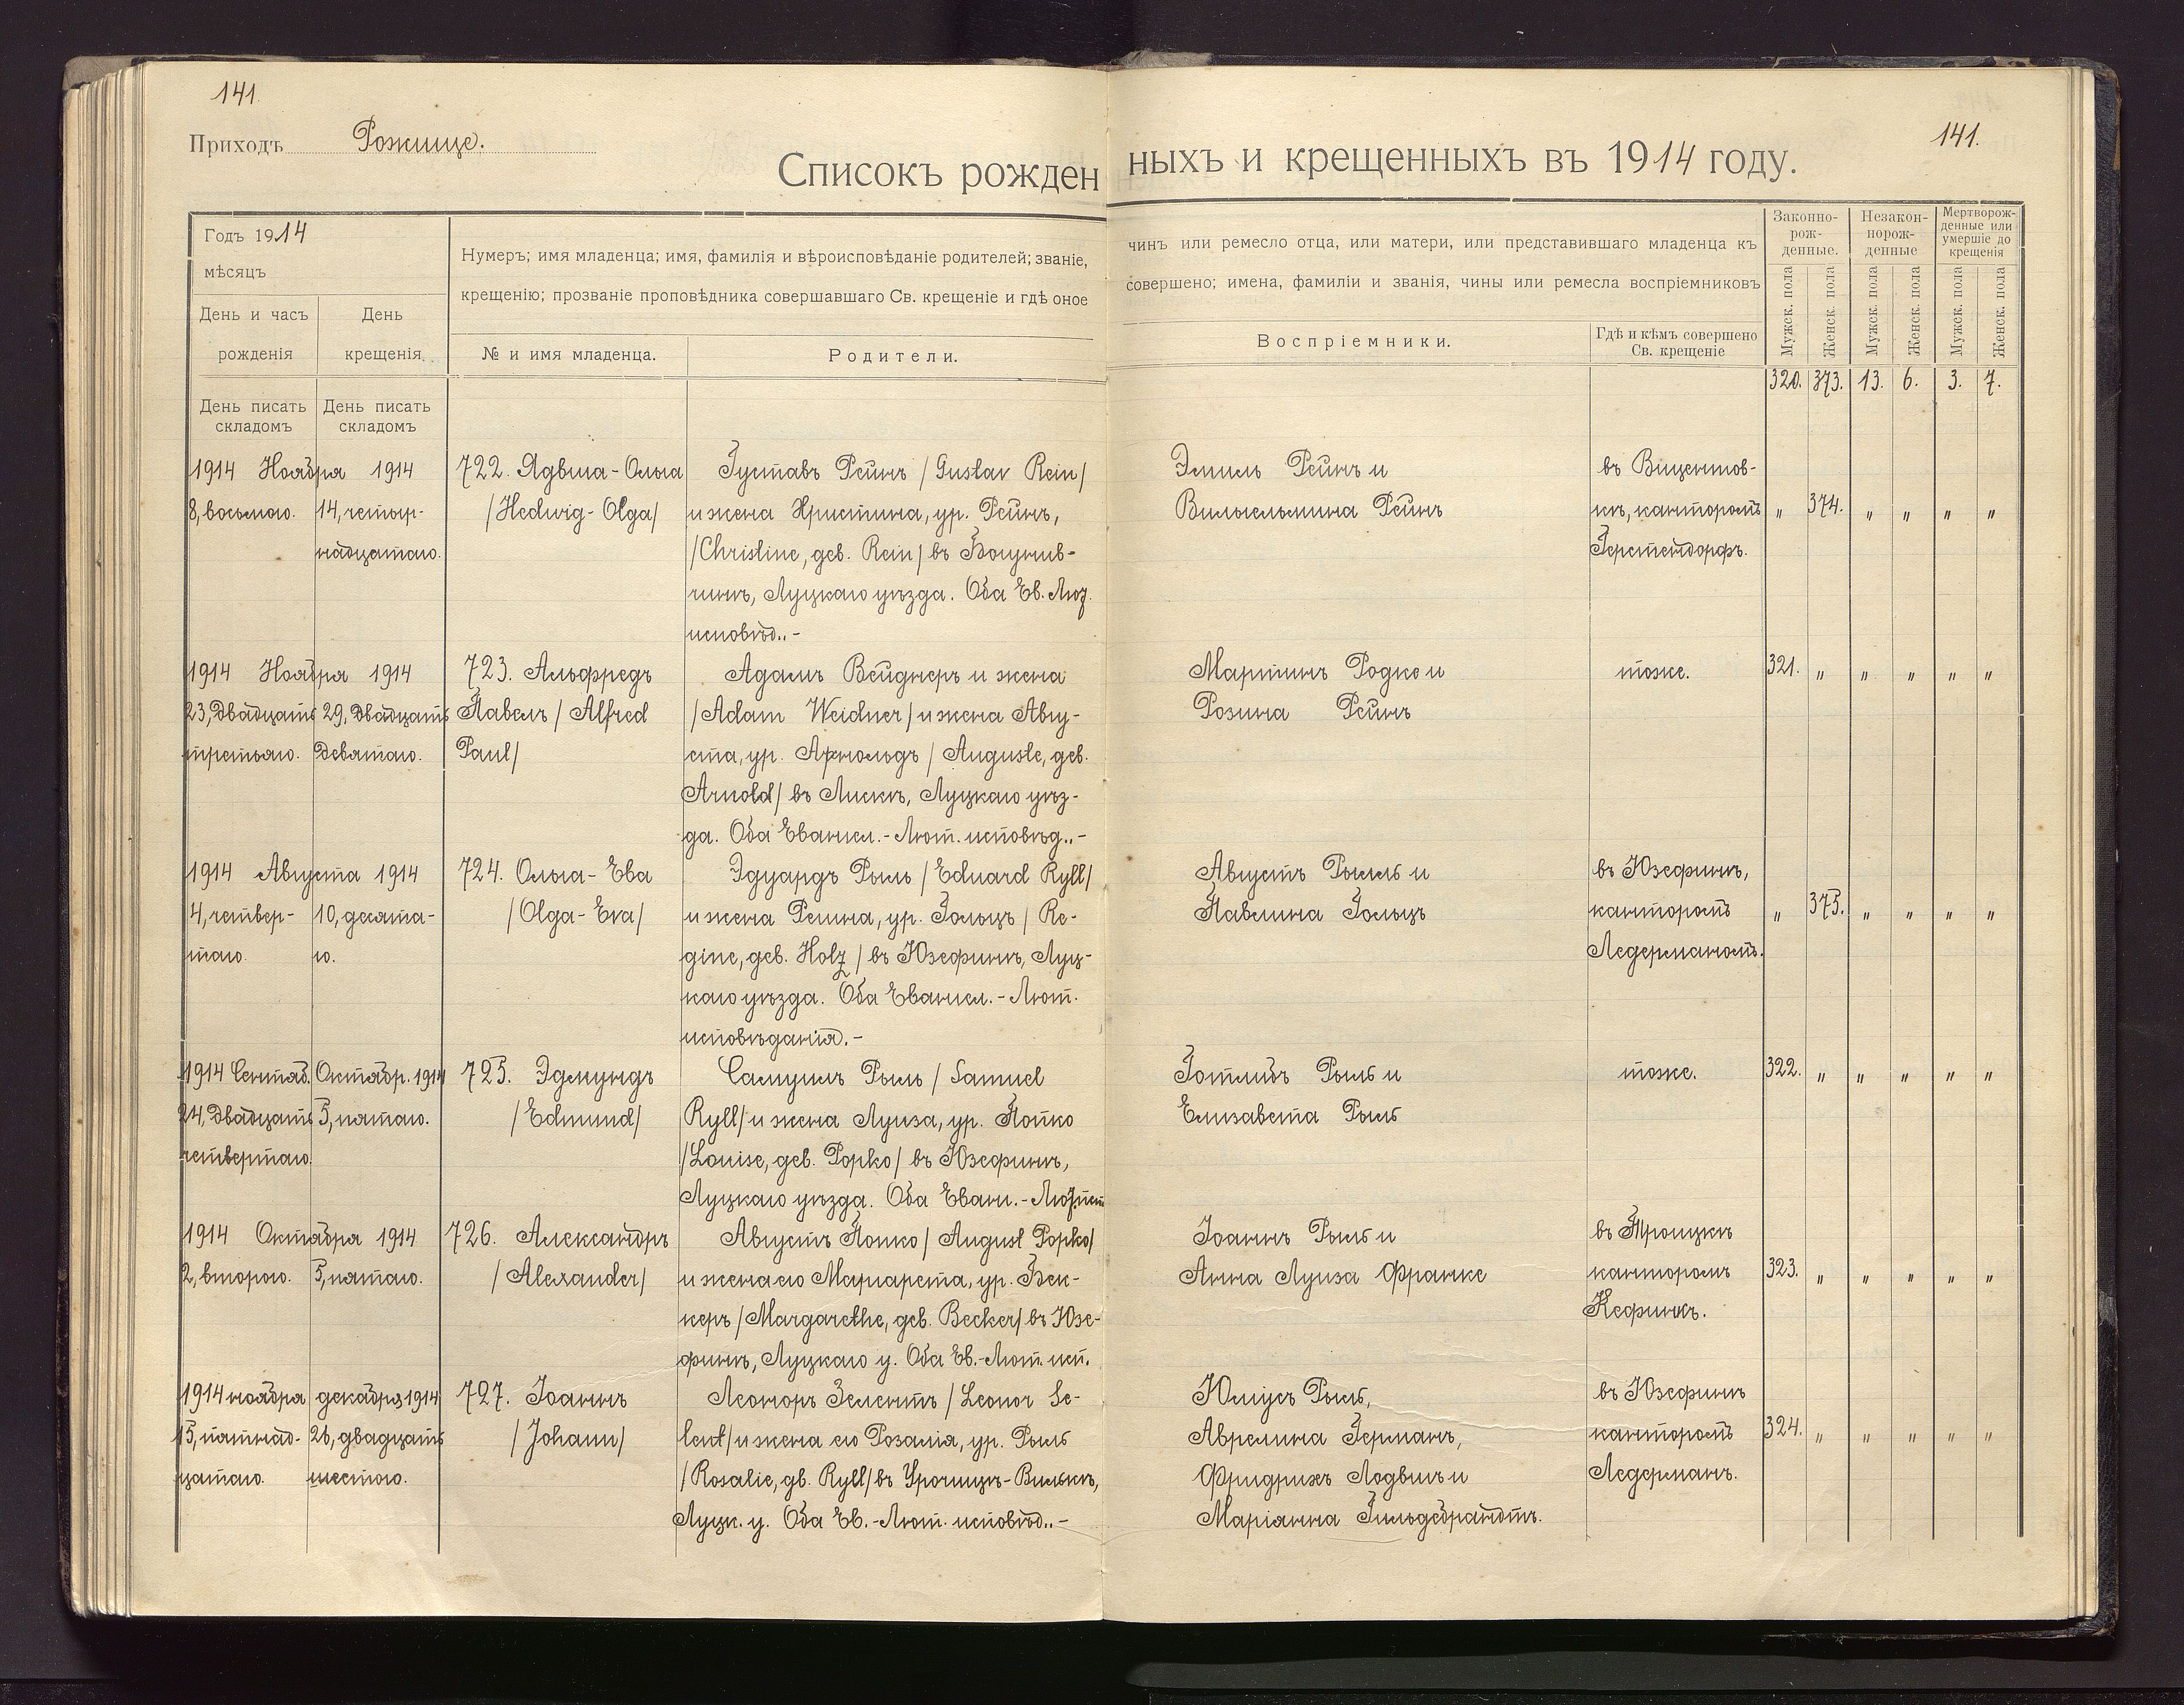 141.
Приходъ Рожище.
141.
Списокъ рожденныхъ и крещенныхъ въ 1914 году.
Годъ 1914
мѣсяцъ
День и часъ рожденія
День крещенія.
Нумеръ; имя младенца; имя, фамилія и вѣроисповѣданіе родителей; званіе, чинъ или ремесло отца, или матери, или представившаго младенца къ
крещенію; прозваніе проповѣдника совершавшаго Св. крещеніе и гдѣ оное совершено; имена, фамиліи и званія, чины или ремесла воспріемниковъ
№ и имя младенца.
Родители.
Воспріемники.
Гдѣ и кѣмъ совершено
Св. крещеніе
Законно-
рож-
денные.
Незакон-
норож-
денные
Мертворож-
денные или
умершіе до
крещенія
Мужск. пола
Женск. пола
Мужск. пола
Женск. пола
Мужск. пола
Женск. пола
День писать
складомъ
День писать
складомъ
320. 373. 13. 6. 3. 7.
1914 Ноября 1914
8, восьмого.
14, четыр-
надцатаго.
722. Ядвига-Ольга
/Hedwig-Olga/
Густавъ Рейнъ /Gustav Rein/
и жена Христина, ур. Рейнъ,
/Christine, geb. Rein/ въ Богунив-
чинъ, Луцкаго уѣзда. Оба Ев. Лют.
исповѣд..-
Эмиль Рейнъ и
Вильгельмина Рейнъ
въ Вицентов-
кѣ, канторомъ
Герстендорфъ.
" 374. " " " "
1914 Ноября 1914
23, двадцать
третьяго.
29, двадцать
девятаго.
723. Альфредъ
Павелъ /Alfred
Paul/
Адамъ Вейднеръ и жена
/Adam Weidner/ и жена Авгу-
ста, ур. Арнольдъ /Auguste, geb.
Arnold/ въ Лискѣ, Луцкаго уѣз-
да. Оба Евангел.-Лют. исповѣд..-
Мартинъ Родке и
Розина Рейнъ
тоже.
321. " " " " "
1914 Августа 1914
4, четвер-
таго.
10, десята-
го.
724. Ольга-Ева
/Olga-Eva/
Эдуардъ Рыль /Eduard Ryll/
и жена Регина, ур. Гольцъ /Re-
gine, geb. Holz/ въ Юзефинѣ, Луц-
каго уѣзда. Оба Евангел.-Лют.
исповѣданія.-
Августъ Рылль и
Павлина Гольцъ
въ Юзефинѣ,
канторомъ
Ледерманомъ.
" 375. " " " "
1914 Сентяб.
24, двадцать
четвертаго.
Октябр. 1914
5, пятаго.
725. Эдмундъ
/Edmund/
Самуилъ Рыль /Samuel
Ryll/ и жена Луиза, ур. Попко
/Louise, geb. Popko/ въ Юзефинѣ,
Луцкаго уѣзда. Оба Еванг.-Лют.исп
Готлибъ Рыль и
Елизавета Рыль
тоже.
322. " " " " "
1914 Октября 1914
2, второго.
5, пятаго.
726. Александръ
/Alexander/
Августъ Попко /August Popko/
и жена его Маргарета, ур. Бек-
керъ /Margarethe, geb. Becker/ въ Юзе-
финѣ, Луцкаго у. Оба Ев.-Лют. исп.
Іоаннъ Рыль и
Анна Луиза Франке
въ Троицкѣ
канторомъ
Кефникъ.
323. " " " " "
1914 ноября
15, пятнад-
цатаго.
декабря 1914
26, двадцать
шестого.
727. Іоаннъ
/Johann/
Леоноръ Зелентъ /Leonor Se-
lent/ и жена его Розалія, ур. Рыль
/Rosalie, gb. Ryll/ въ Урочищѣ-Вилькѣ,
Луцк. у. Оба Ев.-Лют. исповѣд..-
Юліусъ Рыль,
Аврелина Германъ,
Фридрихъ Лодвигъ и
Маріанна Гильдебрандтъ.
въ Юзефинѣ
канторомъ
Ледерманъ.
324. " " " " "